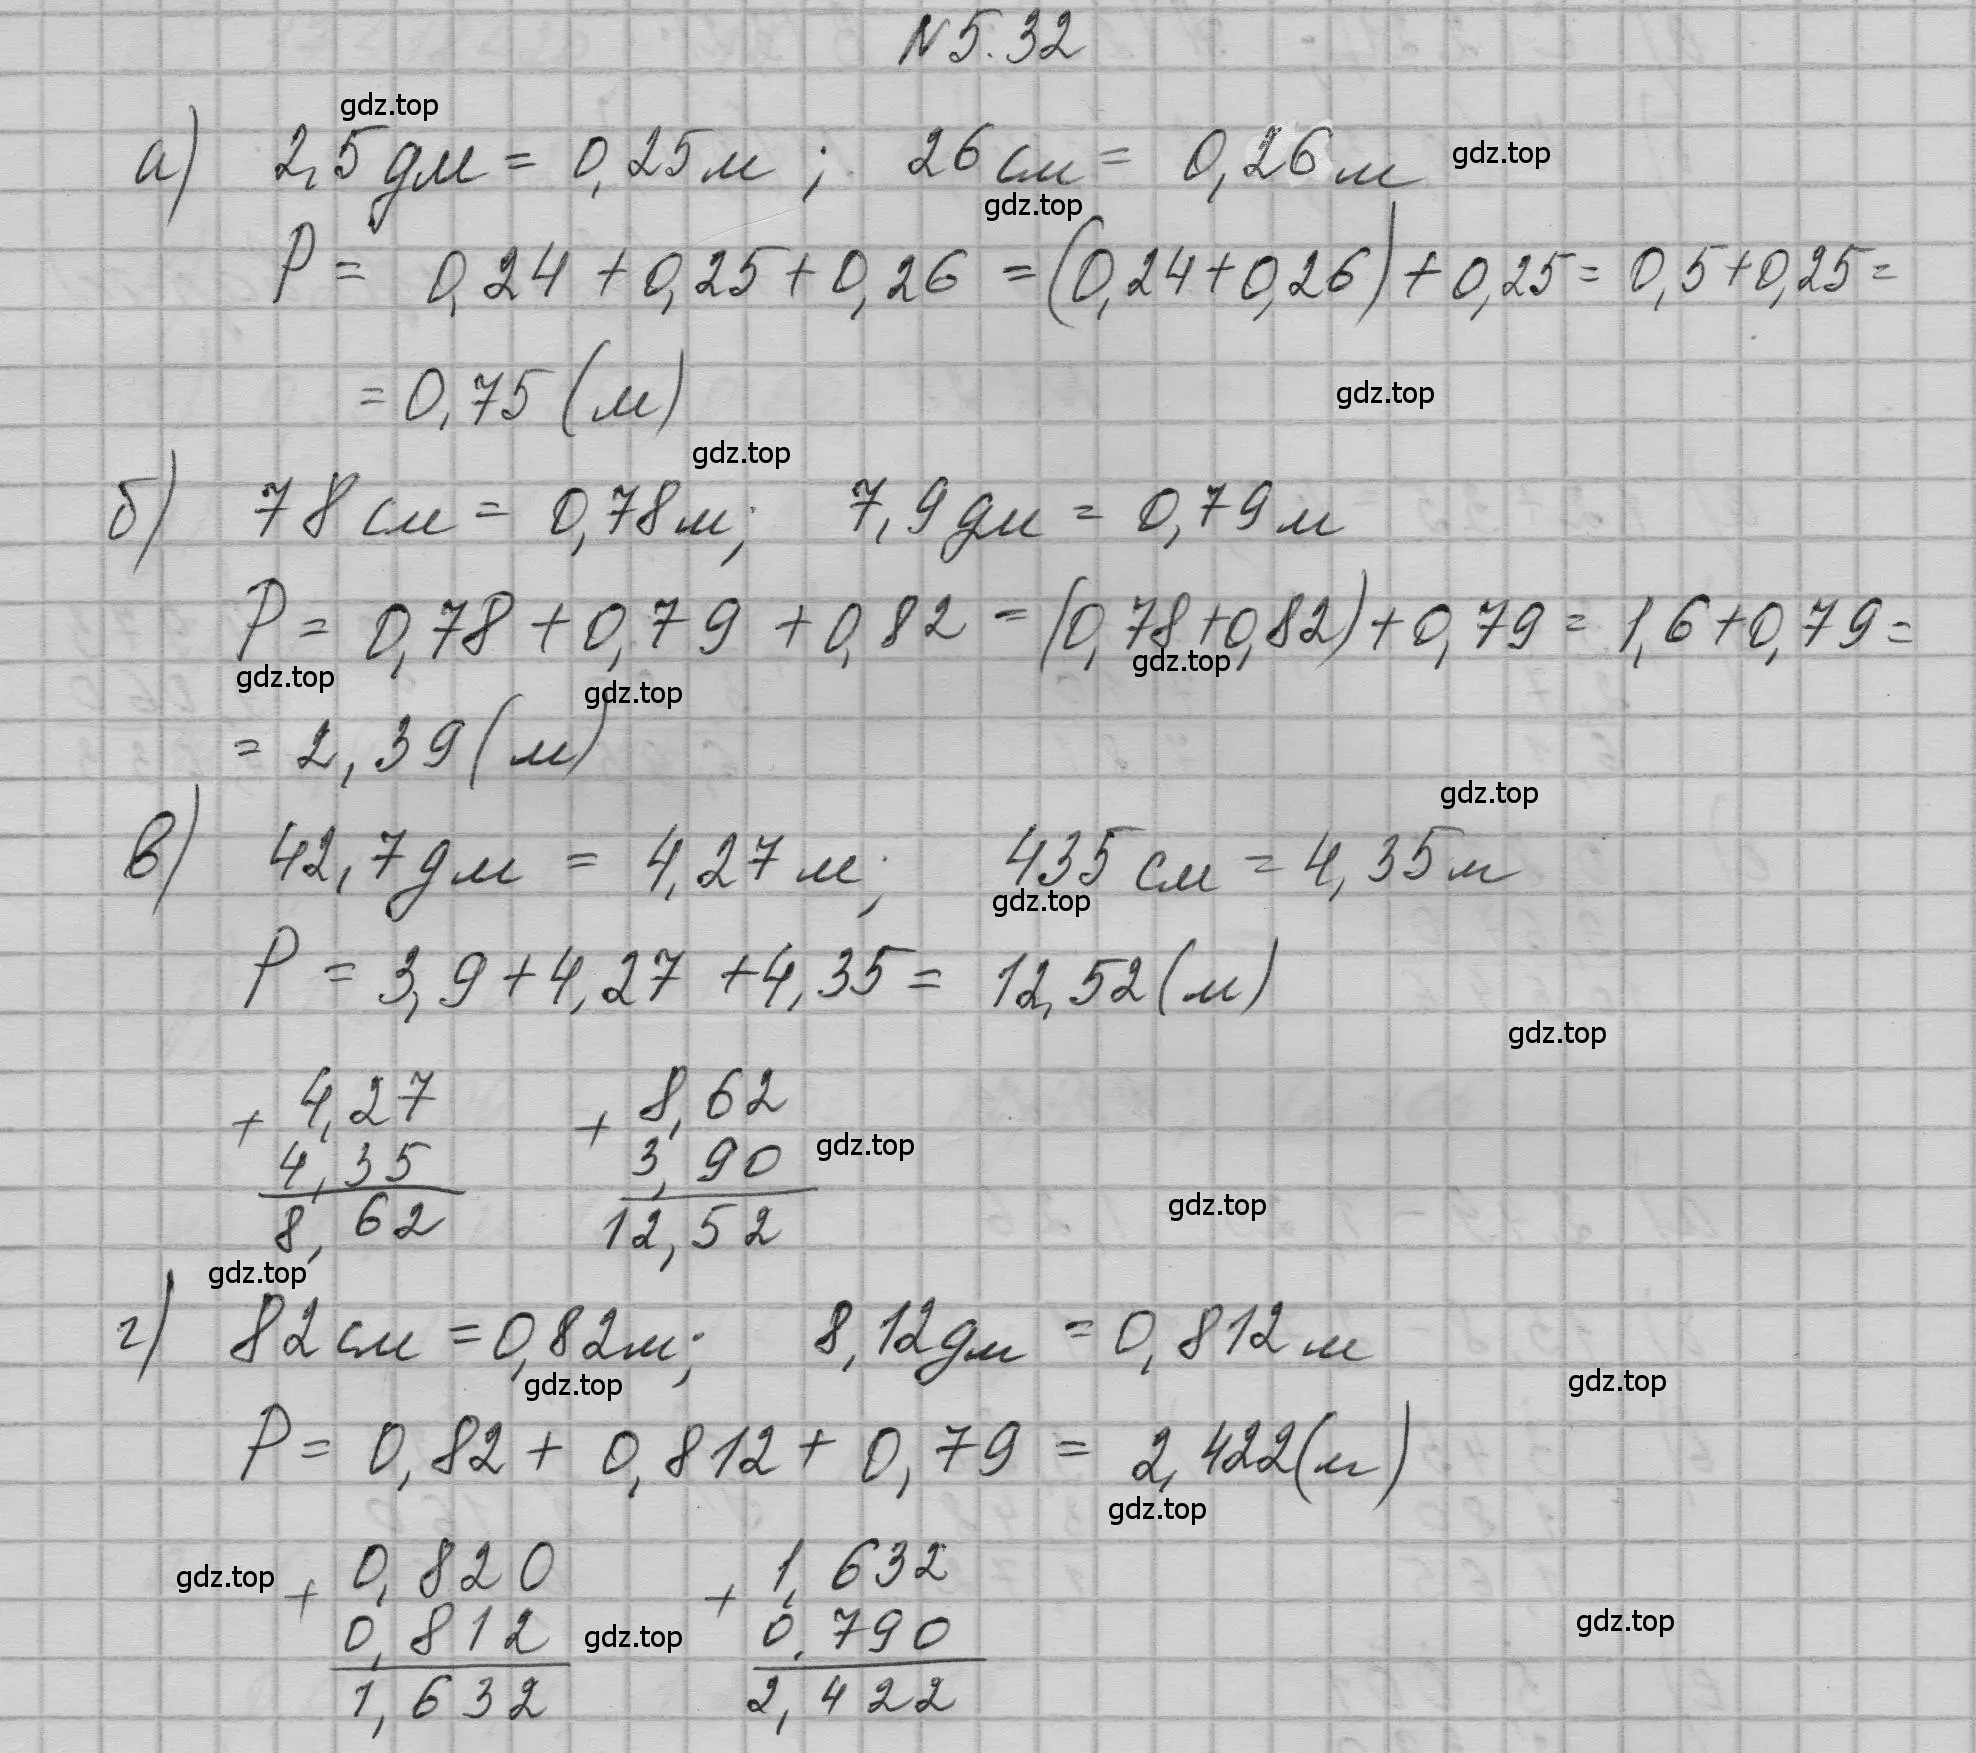 N 5.32
gdz.top
а) 2,5 дм = 0,25 м ; 26 см = 0,26 м gdz.top
gdz.top
P = 0,24 + 0,25 + 0,26 = (0,24 + 0,26) + 0,25 = 0,5 + 0,25 =
= 0,75 (м) gdz.top
gdz.top
б) 78 см = 0,78 м; 7,9 дм = 0,79 м
P = 0,78 + 0,79 + 0,82 = (0,78 + 0,82) + 0,79 = 1,6 + 0,79 =
gdz.top gdz.top gdz.top
= 2,39 (м)
gdz.top
в) 42,7 дм = 4,27 м; 435 см = 4,35 м
gdz.top
P = 3,9 + 4,27 + 4,35 = 12,52 (м)
gdz.top
+ 4,27 + 8,62
4,35 3,90 gdz.top
8,62 12,52 gdz.top
gdz.top
г) 82 см = 0,82 м; 8,12 дм = 0,812 м
gdz.top gdz.top
P = 0,82 + 0,812 + 0,79 = 2,422 (м)
gdz.top
gdz.top + 0,820 + 1,632
0,812 gdz.top 0,790 gdz.top
1,632 2,422